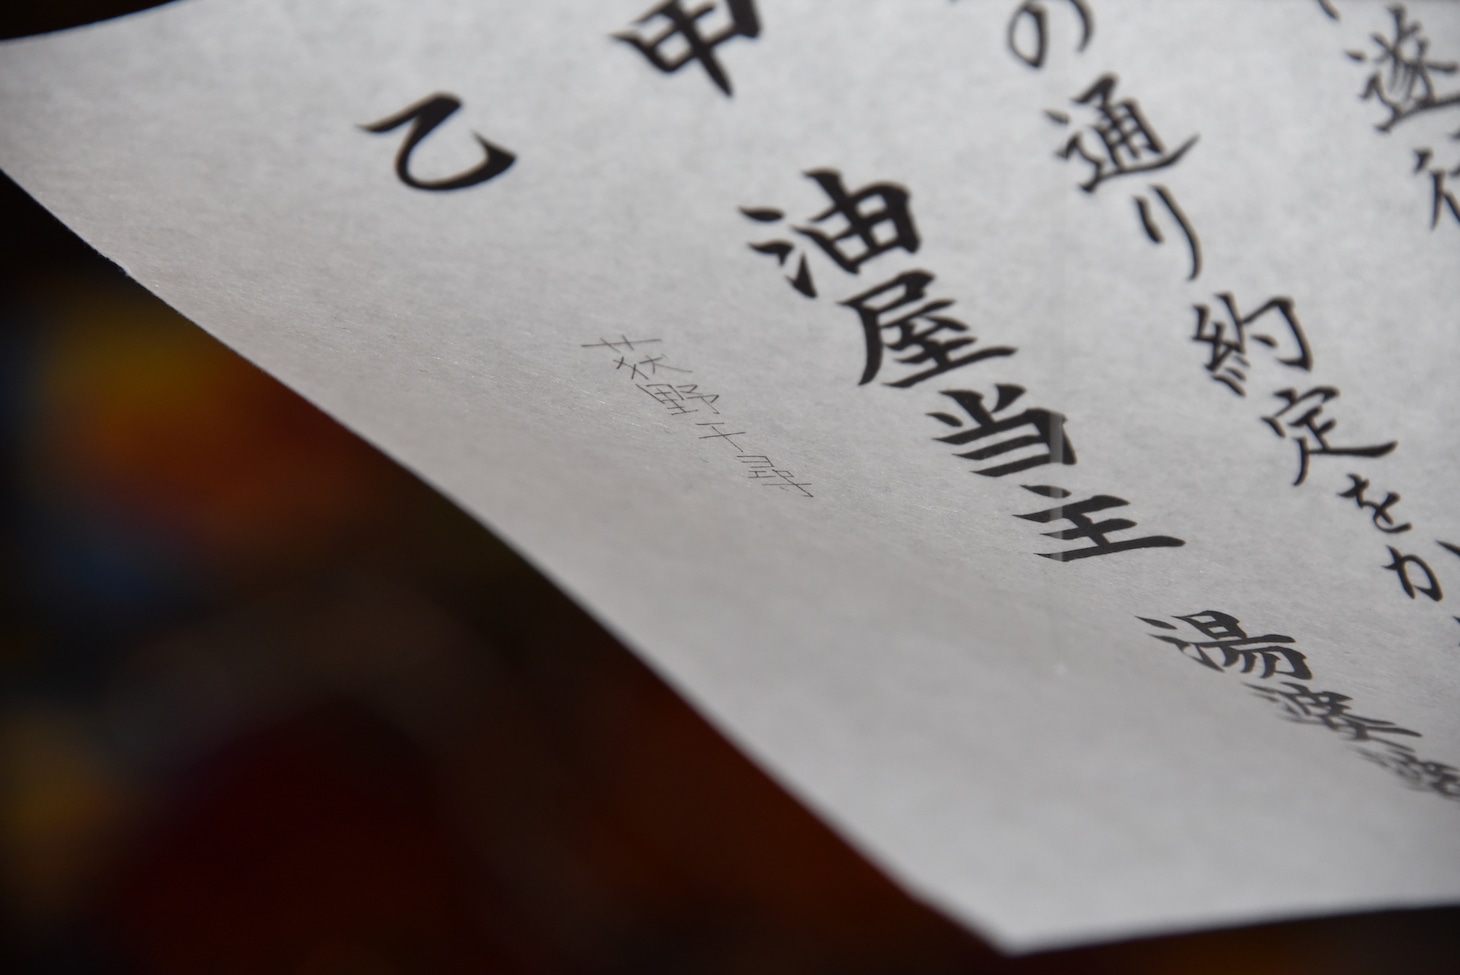 遂
の通り約定をか
甲 油屋当主 湯婆婆
乙 荻野千尋